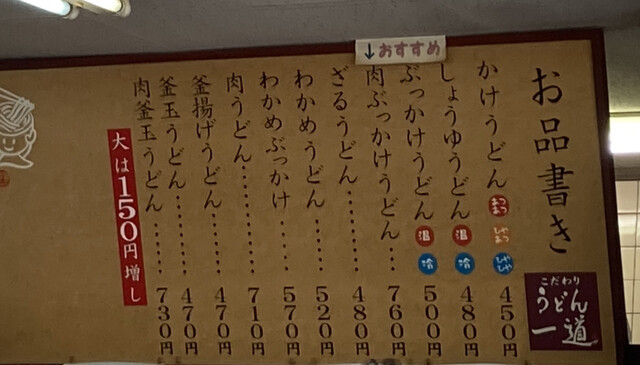 ↓おすすめ
お品書き
こだわり
うどん
一道
かけうどん あつあつ ひやあつ ひやひや 450円
しょうゆうどん 温 冷 480円
ぶっかけうどん 温 冷 500円
肉ぶっかけうどん… 760円
ざるうどん…… 480円
わかめうどん…… 520円
わかめぶっかけ… 570円
肉うどん……… 710円
釜揚げうどん…… 470円
釜玉うどん…… 470円
肉釜玉うどん…… 730円
大は150円増し